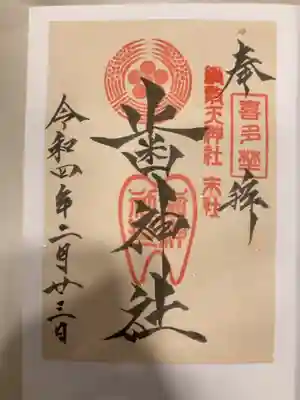 奉拝
喜多埜
綱敷天神社 末社
歯神社
令和四年二月廿三日